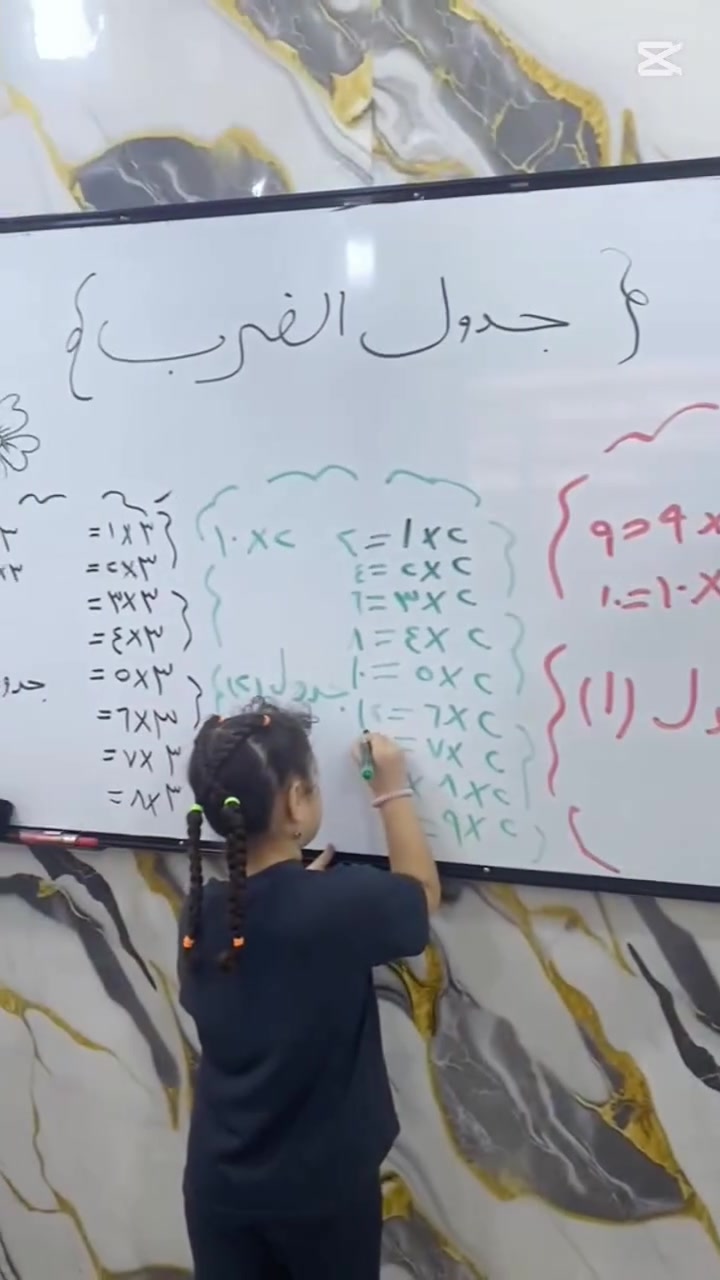 { جدول الضرب }
٩ = ٩ ×
١٠ = ١٠ ×
(١)
٢ × ١ = ٢
٢ × ٢ = ٤
٢ × ٣ = ٦
٢ × ٤ = ٨
٢ × ٥ = ١٠
٢ × ٦ = ١٢
٢ × ٧ =
٢ × ٨
٢ × ٩ =
٢ × ١٠
جدول (٢)
٣ × ١ =
٣ × ٢ =
٣ × ٣ =
٣ × ٤ =
٣ × ٥ =
٣ × ٦ =
٣ × ٧ =
٣ × ٨ =